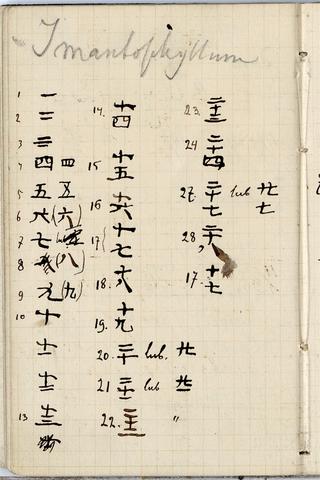 Imantophyllum
1 一
2 二
3 三
4 四 四
5 五 五
6 六 (六)
7 七
8 (八)
9 九 (九)
10 十
十一
十二
13 十三
14. 十四
15 十五
16 十六
17 十七
18. 十八
19. 十九
20. 二十 lub. 廿
21 二十一 lub 廿一
22. 二十二 "
23. 二十三
24 二十四
27. 二十七 lub 廿七
28,
17. 十七